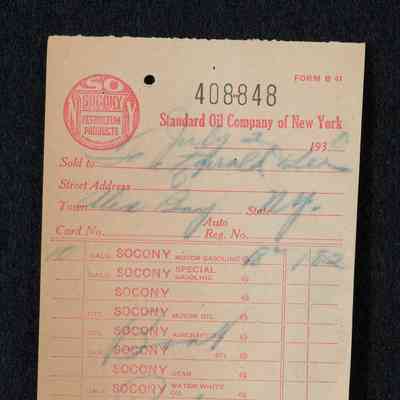 FORM B 41
SO
SOCONY
PETROLEUM
PRODUCTS
N Y
408-848
Standard Oil Company of New York
July 2 193
Sold to
Street Address
Town Alex Bay State N.Y.
Card No. Auto Reg. No.
10 GALS. SOCONY MOTOR GASOLINE @
GALS. SOCONY SPECIAL GASOLINE @
SOCONY
QTS. SOCONY MOTOR OIL @
SOCONY AIRCRAFT @
SOCONY OIL @
SOCONY GEAR @
GALS. SOCONY WATER WHITE OIL @